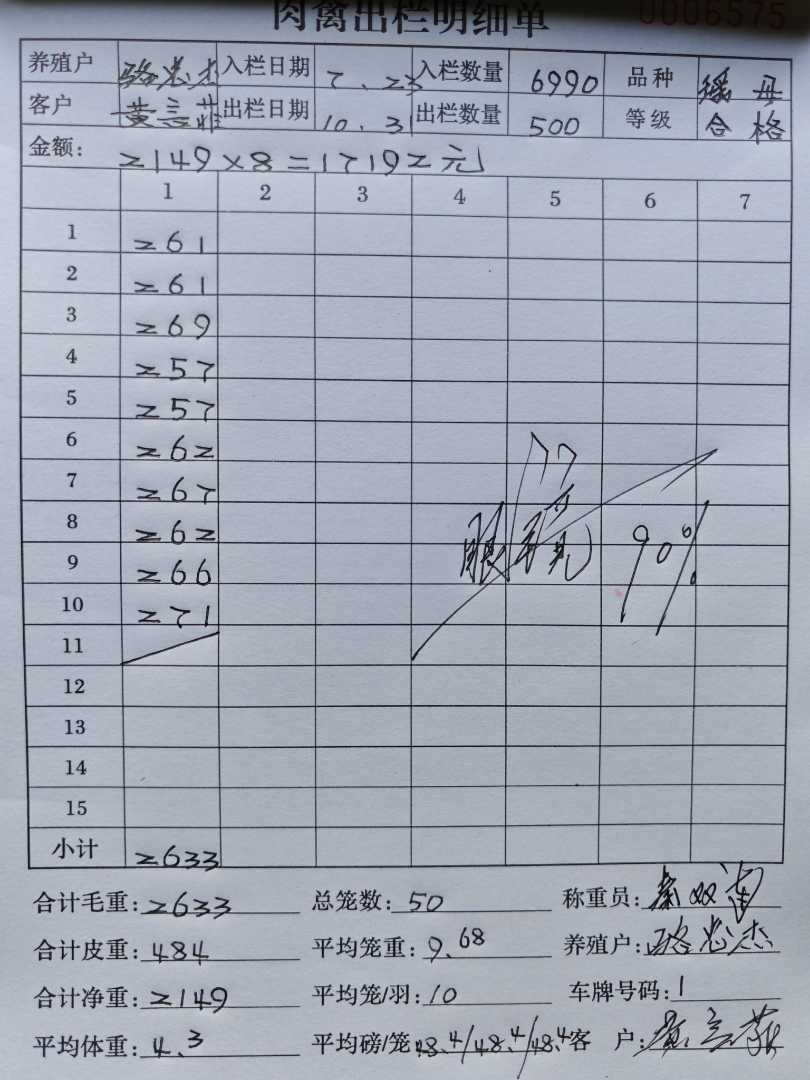 肉禽出栏明细单 0006575
养殖户 骆忠杰 入栏日期 7.23 入栏数量 6990 品种 瑶母
客户 黄言菲 出栏日期 10.31 出栏数量 500 等级 合格
金额: 2149×8=17192元
1 2 3 4 5 6 7
1 261
2 261
3 269
4 257
5 257
6 262
7 267
8 262
9 266
10 271
11
12
13
14
15
90%
小计 2633
合计毛重: 2633 总笼数: 50 称重员:
合计皮重: 484 平均笼重: 9.68 养殖户: 骆忠杰
合计净重: 2149 平均笼/羽: 10 车牌号码: 1
平均体重: 4.3 平均磅/笼 48.4/48.4/48.4 客 户: